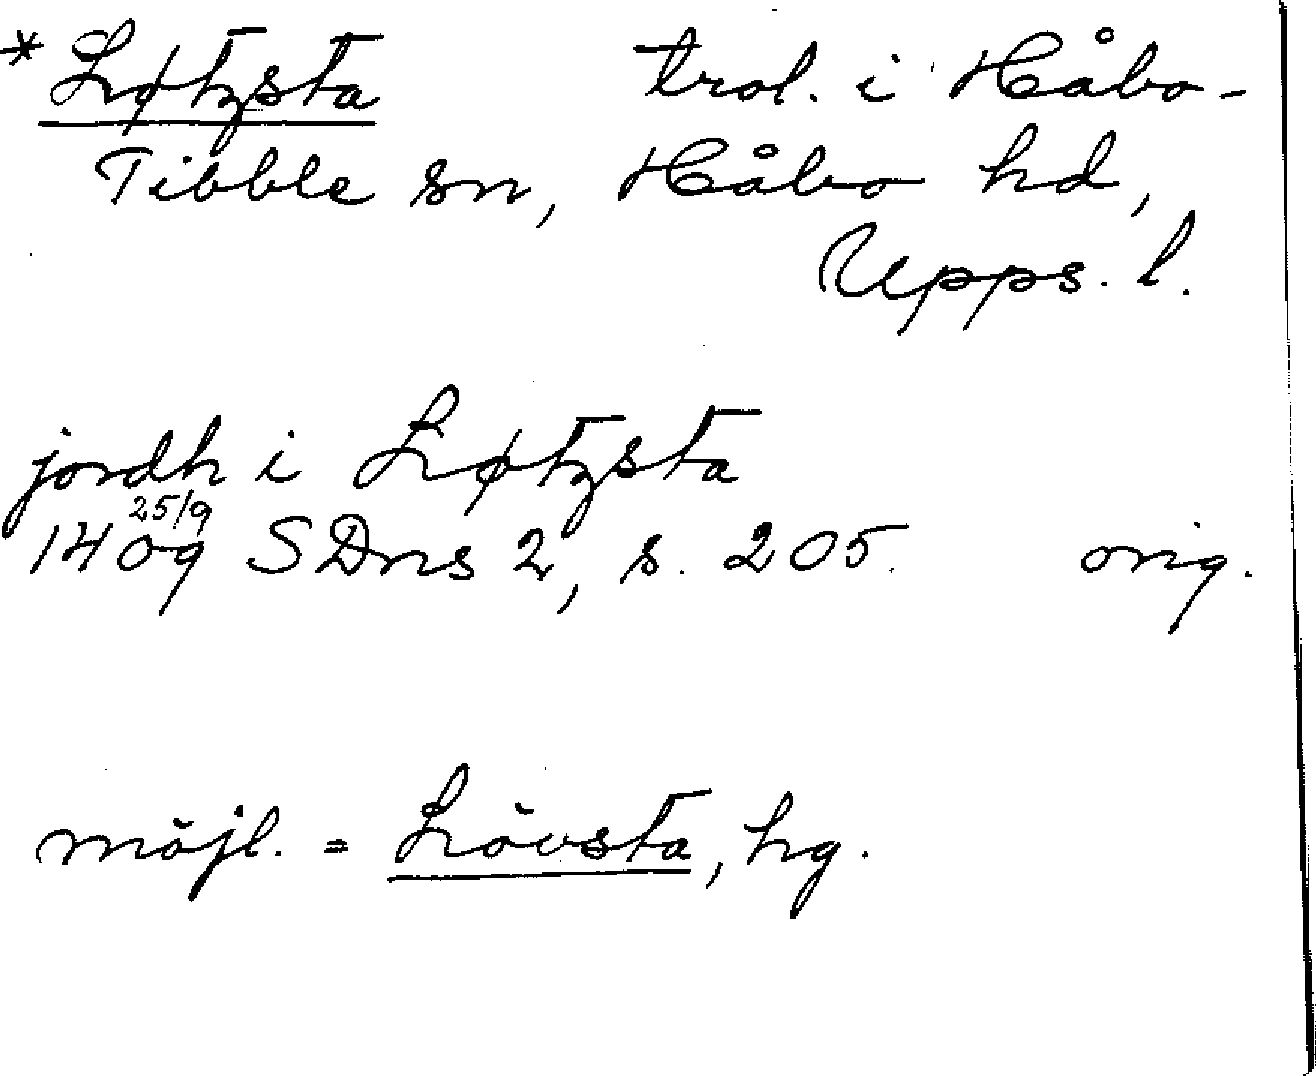 *Løtzsta trol. i Håbo-
Tibble sn, Håbo hd,
Upps. l.
jordh i Løtzsta
25/9
1409 SDns 2, s. 205. orig.
möjl. = Lövsta, hg.